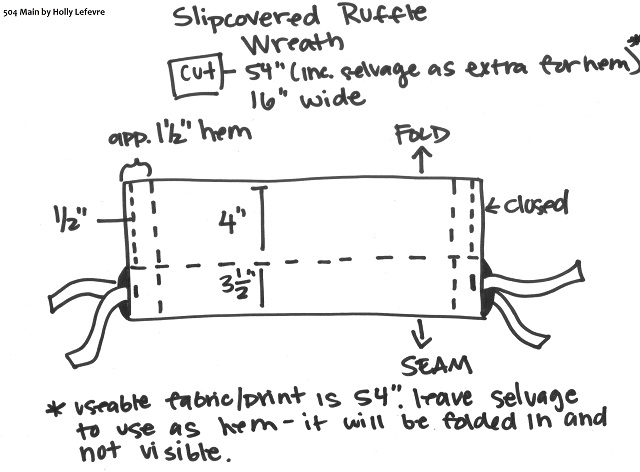 504 Main by Holly Lefevre
Slipcovered Ruffle
Wreath
Cut - 54" (inc. selvage as extra for hem)*
16" wide
app. 1½" hem
FOLD
½"
4"
closed
3½"
SEAM
* useable fabric/print is 54". leave selvage
to use as hem - it will be folded in and
not visible.